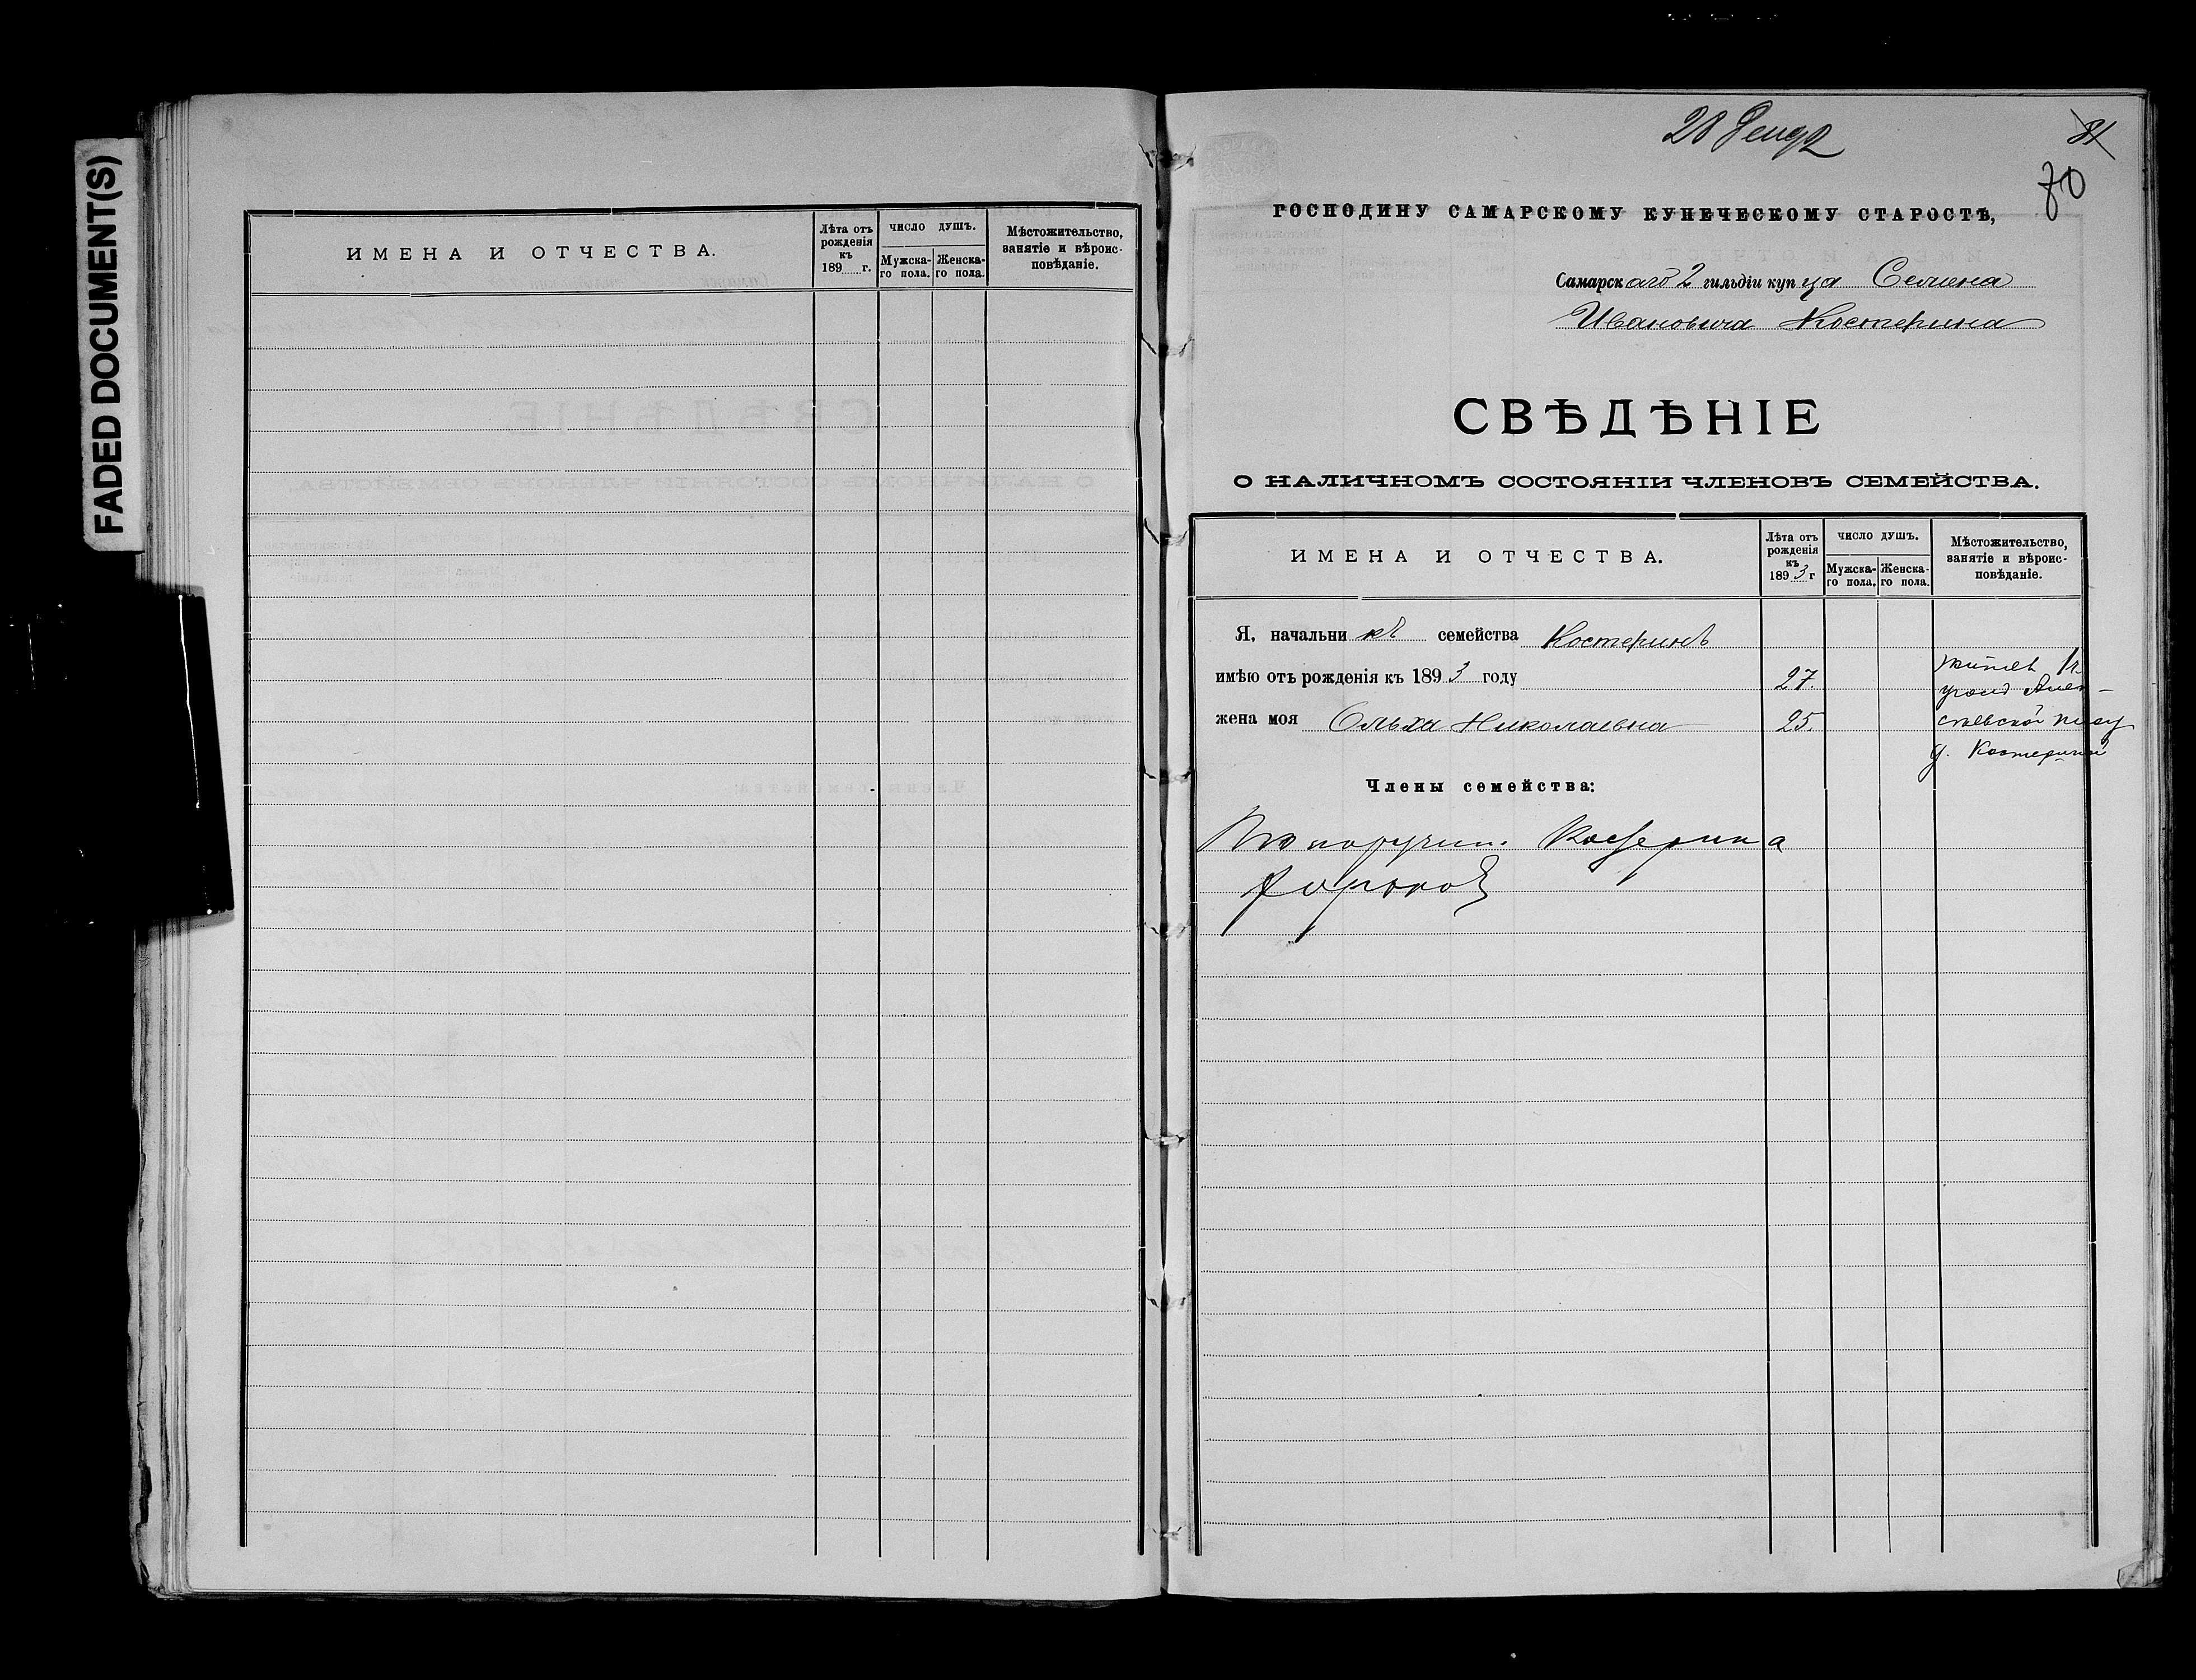 FADED DOCUMENT(S)
ИМЕНА И ОТЧЕСТВА.
Лѣта отъ рожденія къ 189 г.
число душъ.
Мужска-го пола.
Женска-го пола.
Мѣстожительство, занятіе и вѣроис-повѣданіе.
81
70
ГОСПОДИНУ САМАРСКОМУ КУПЕЧЕСКОМУ СТАРОСТѢ,
Самарскаго 2 гильдіи купца Семена
Ивановича Костерина
СВѢДѢНІЕ
О НАЛИЧНОМЪ СОСТОЯНІИ ЧЛЕНОВЪ СЕМЕЙСТВА.
ИМЕНА И ОТЧЕСТВА.
Лѣта отъ рожденія къ 1893 г
число душъ.
Мужска-го пола.
Женска-го пола.
Мѣстожительство, занятіе и вѣроис-повѣданіе.
Я, начальникъ семейства Костеринъ
имѣю отъ рожденія къ 1893 году 27.
жена моя Ольга Николаевна 25.
д. Костериной
Члены семейства:
По поручен. Костерина